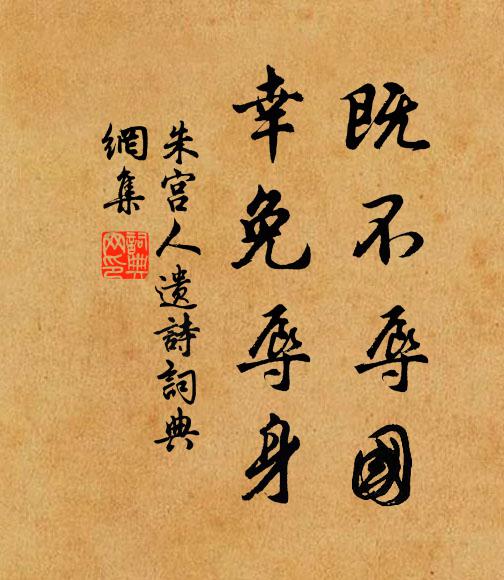 既不辱國
幸免辱身
朱宫人遗詩詞典
網集
詞典網印